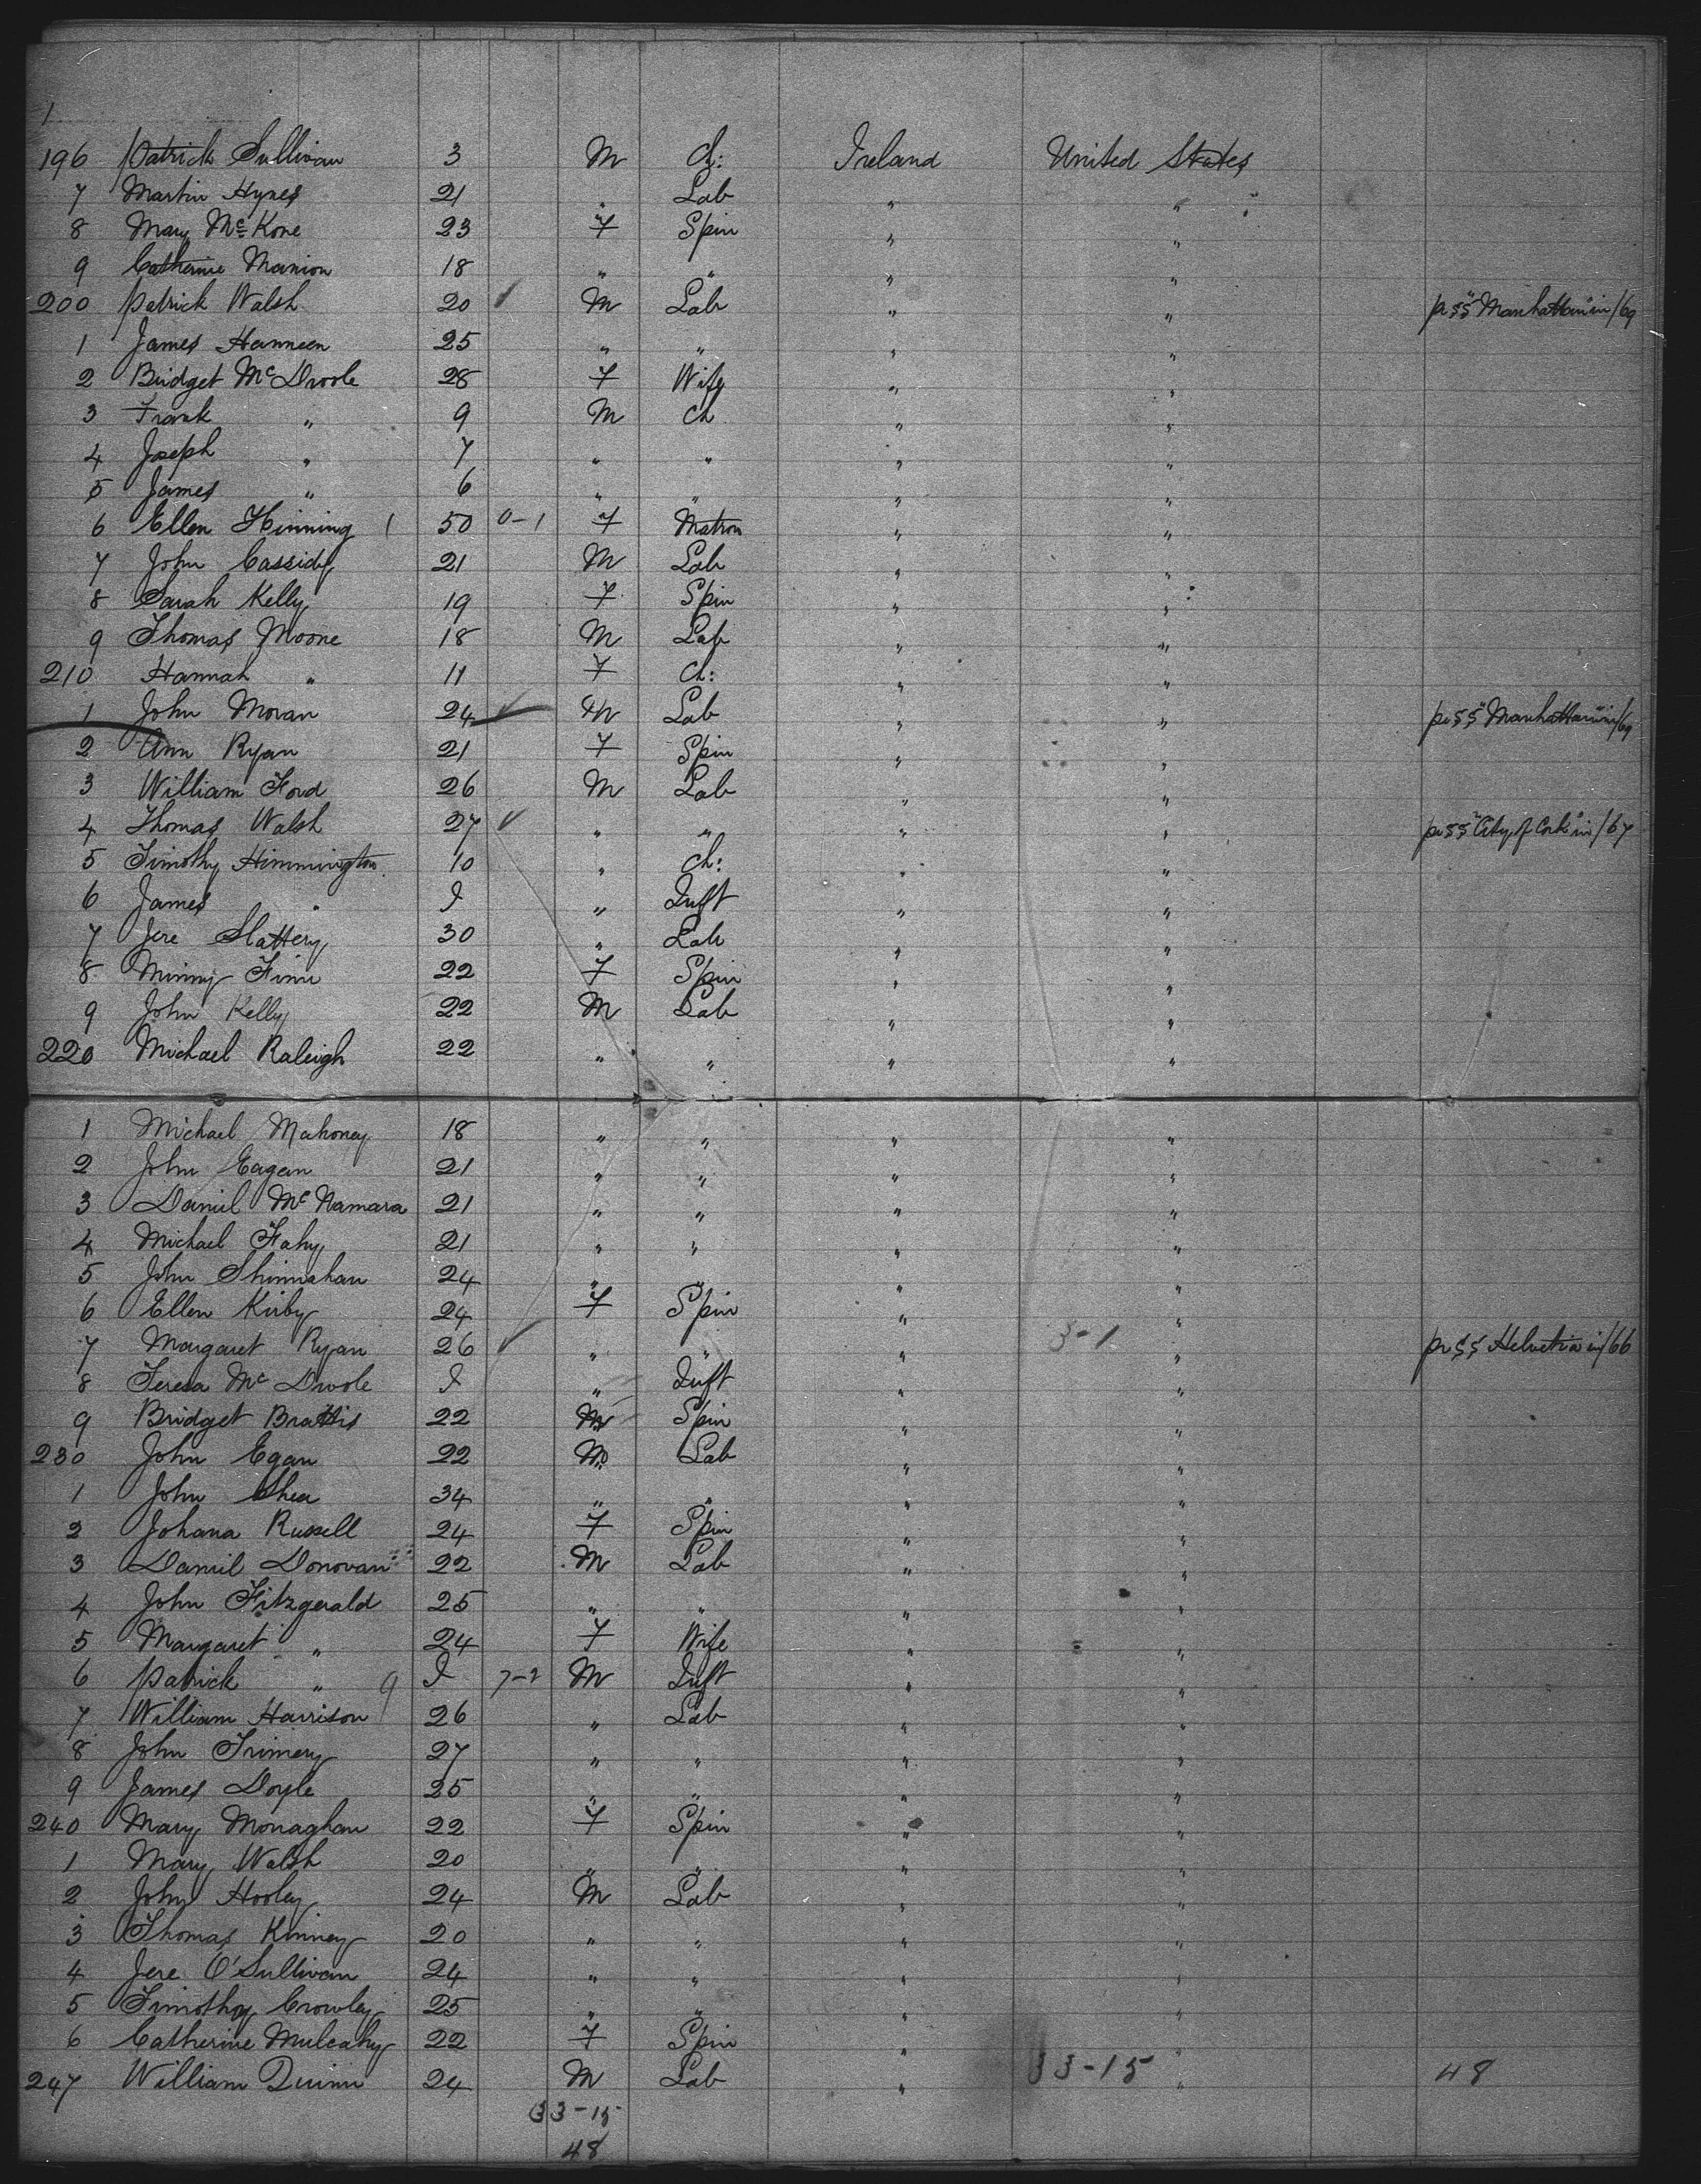 1
196 Patrick Sullivan 3 M Ch: Ireland United States
7 Martin Hynes 21 " Lab " "
8 Mary McKone 23 F Spin " "
9 Catherine Manion 18 " " " "
200 Patrick Walsh 20 ✓ M Lab " " pr SS "Manhattan" in /69
1 James Hanneen 25 " " " "
2 Bridget McDroole 28 F Wife " "
3 Frank " 9 M Ch " "
4 Joseph " 7 " " " "
5 James " 6 " " " "
6 Ellen Hinning 1 50 0-1 F Matron " "
7 John Cassidy 21 M Lab " "
8 Sarah Kelly 19 F Spin " "
9 Thomas Moone 18 M Lab " "
210 Hannah " 11 F Ch: " "
1 John Moran 24 ✓ M Lab " " pr SS "Manhattan" in /69
2 Ann Ryan 21 F Spin " "
3 William Ford 26 M Lab " "
4 Thomas Walsh 27 ✓ " " " " pr SS "City of Cork" in /67
5 Timothy Himmington 10 " Ch: " "
6 James " I " Inft " "
7 Jere Slattery 30 " Lab " "
8 Minny Finn 22 F Spin " "
9 John Kelly 22 M Lab " "
220 Michael Raleigh 22 " " " "
1 Michael Mahoney 18 " " " "
2 John Eagan 21 " " " "
3 Daniel McNamara 21 " " " "
4 Michael Fahy 21 " " " "
5 John Shinnahan 24 " " " "
6 Ellen Kirby 24 F Spin " "
7 Margaret Ryan 26 ✓ " " " 3-1 " pr SS Helvetia in /66
8 Teresa Mc Droole I " Inft " "
9 Bridget Brattis 22 M Spin " "
230 John Egan 22 M Lab " "
1 John Shea 34 " " " "
2 Johana Russell 24 F Spin " "
3 Daniel Donovan 22 M Lab " "
4 John Fitzgerald 25 " " " "
5 Margaret " 24 F Wife " "
6 Patrick " 9 I 7-2 M Inft " "
7 William Harrison 26 " Lab " "
8 John Trimery 27 " " " "
9 James Doyle 25 " " " "
240 Mary Monaghan 22 F Spin " "
1 Mary Walsh 20 " " " "
2 John Hooley 24 M Lab " "
3 Thomas Kinney 20 " " " "
4 Jere O'Sullivan 24 " " " "
5 Timothy Crowley 25 " " " "
6 Catherine Mulcahy 22 F Spin " "
247 William Quinn 24 M Lab " 33-15 " 48
33-15
48